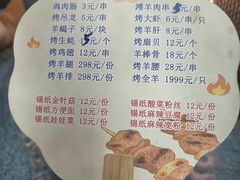 鸡肉肠 3元/串
烤吊龙 5元/串
羊蝎子 8元/块
烤生蚝 1元/个
烤鸡翅 12元/串
烤羊腿 298元/份
烤羊排 298元/份
滩羊肉串 5元/串
烤大虾 6元/串/只
烤羊肝 8元/串
烤扇贝 12元/个
羊棒骨 18元/个
烤羊腰 28元/串
烤全羊 1999元/只
锡纸金针菇 12元/份
锡纸方便面 12元/份
锡纸娃娃菜 12元/份
锡纸酸菜粉丝 12元/份
锡纸麻辣豆腐 12元/份
锡纸麻辣宽粉 12元/份